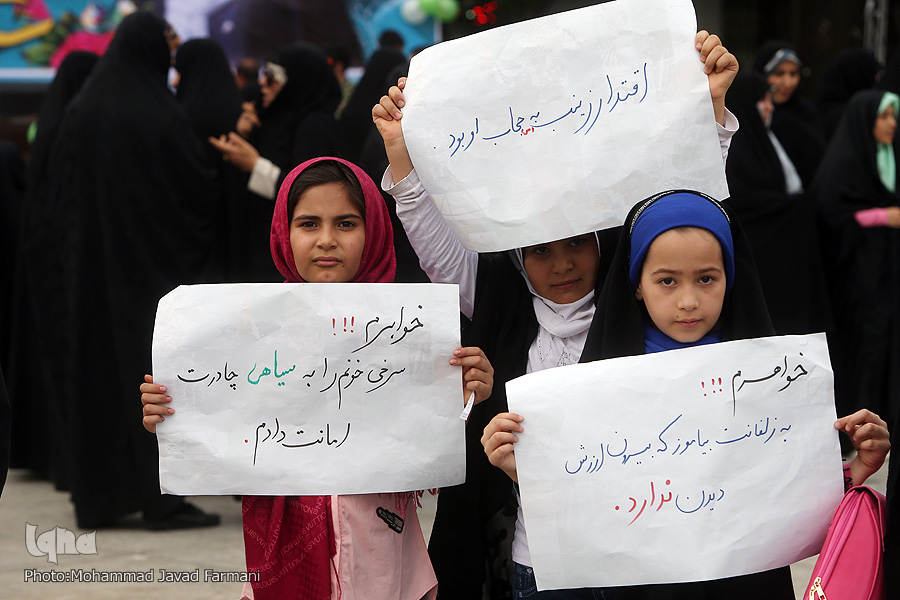 اقتدار زینب به حجاب او بود .
خواهرم !!!
سرخی خونم را به سیاهی چادرت
امانت دادم .
خواهرم !!!
به زلفانت بیاموز که بیرون ارزش
دیدن ندارد .
iqna
Photo:Mohammad Javad Farmani